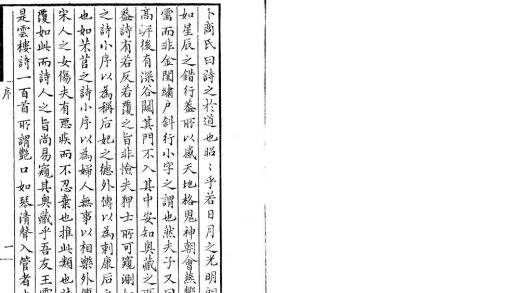 卜商氏曰詩之於道也昭〻乎若日月之光明
如星辰之錯行葢所以感天地格鬼神朝會燕
雷而非金閨繡户斜行小字之謂也然夫子又曰
高岸後有深谷闚其門不入其中安知奥藏之所
葢詩有若反若覆之旨非憸夫狎士所可窺測如
之詩小序以為稱后妃之德外傳以為刺康后之
也如芣苢之詩小序以為婦人無事以相樂外傳
宋人之女傷夫有惡疾而不忍棄也推此類也
覆如此而詩人之旨尚易窺其奥藏乎吾友王雲
是雲樓詩一百首所謂艷口如琴清聲入管者
序
一